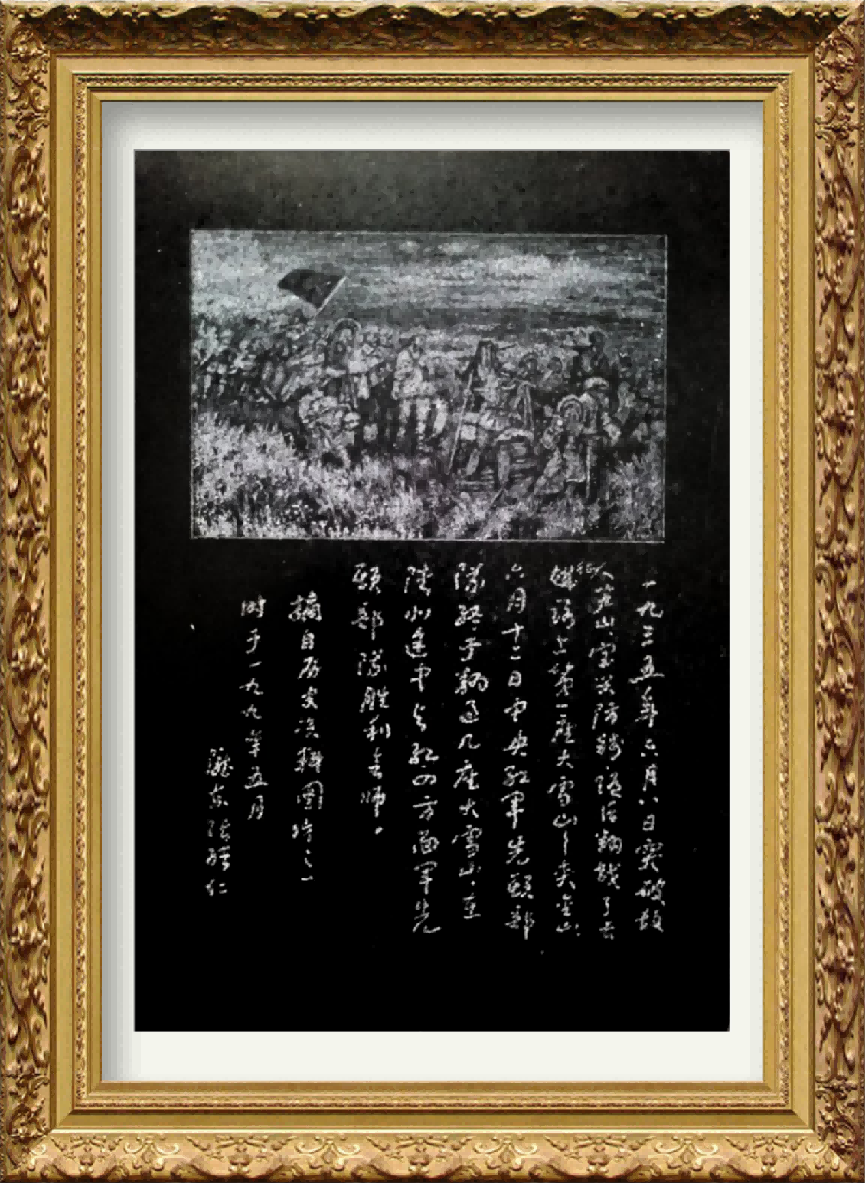 一九三五年六月八日突破敌
人芦山、宝兴防线随后翻越了
征路上第一座大雪山—夹金山
六月十二日中央红军先头部
队终于翻过几座大雪山,在
陕北途中与红四方面军先
头部队胜利会师。
摘自历史资料图片之一
时于一九九年五月
陇东张仁